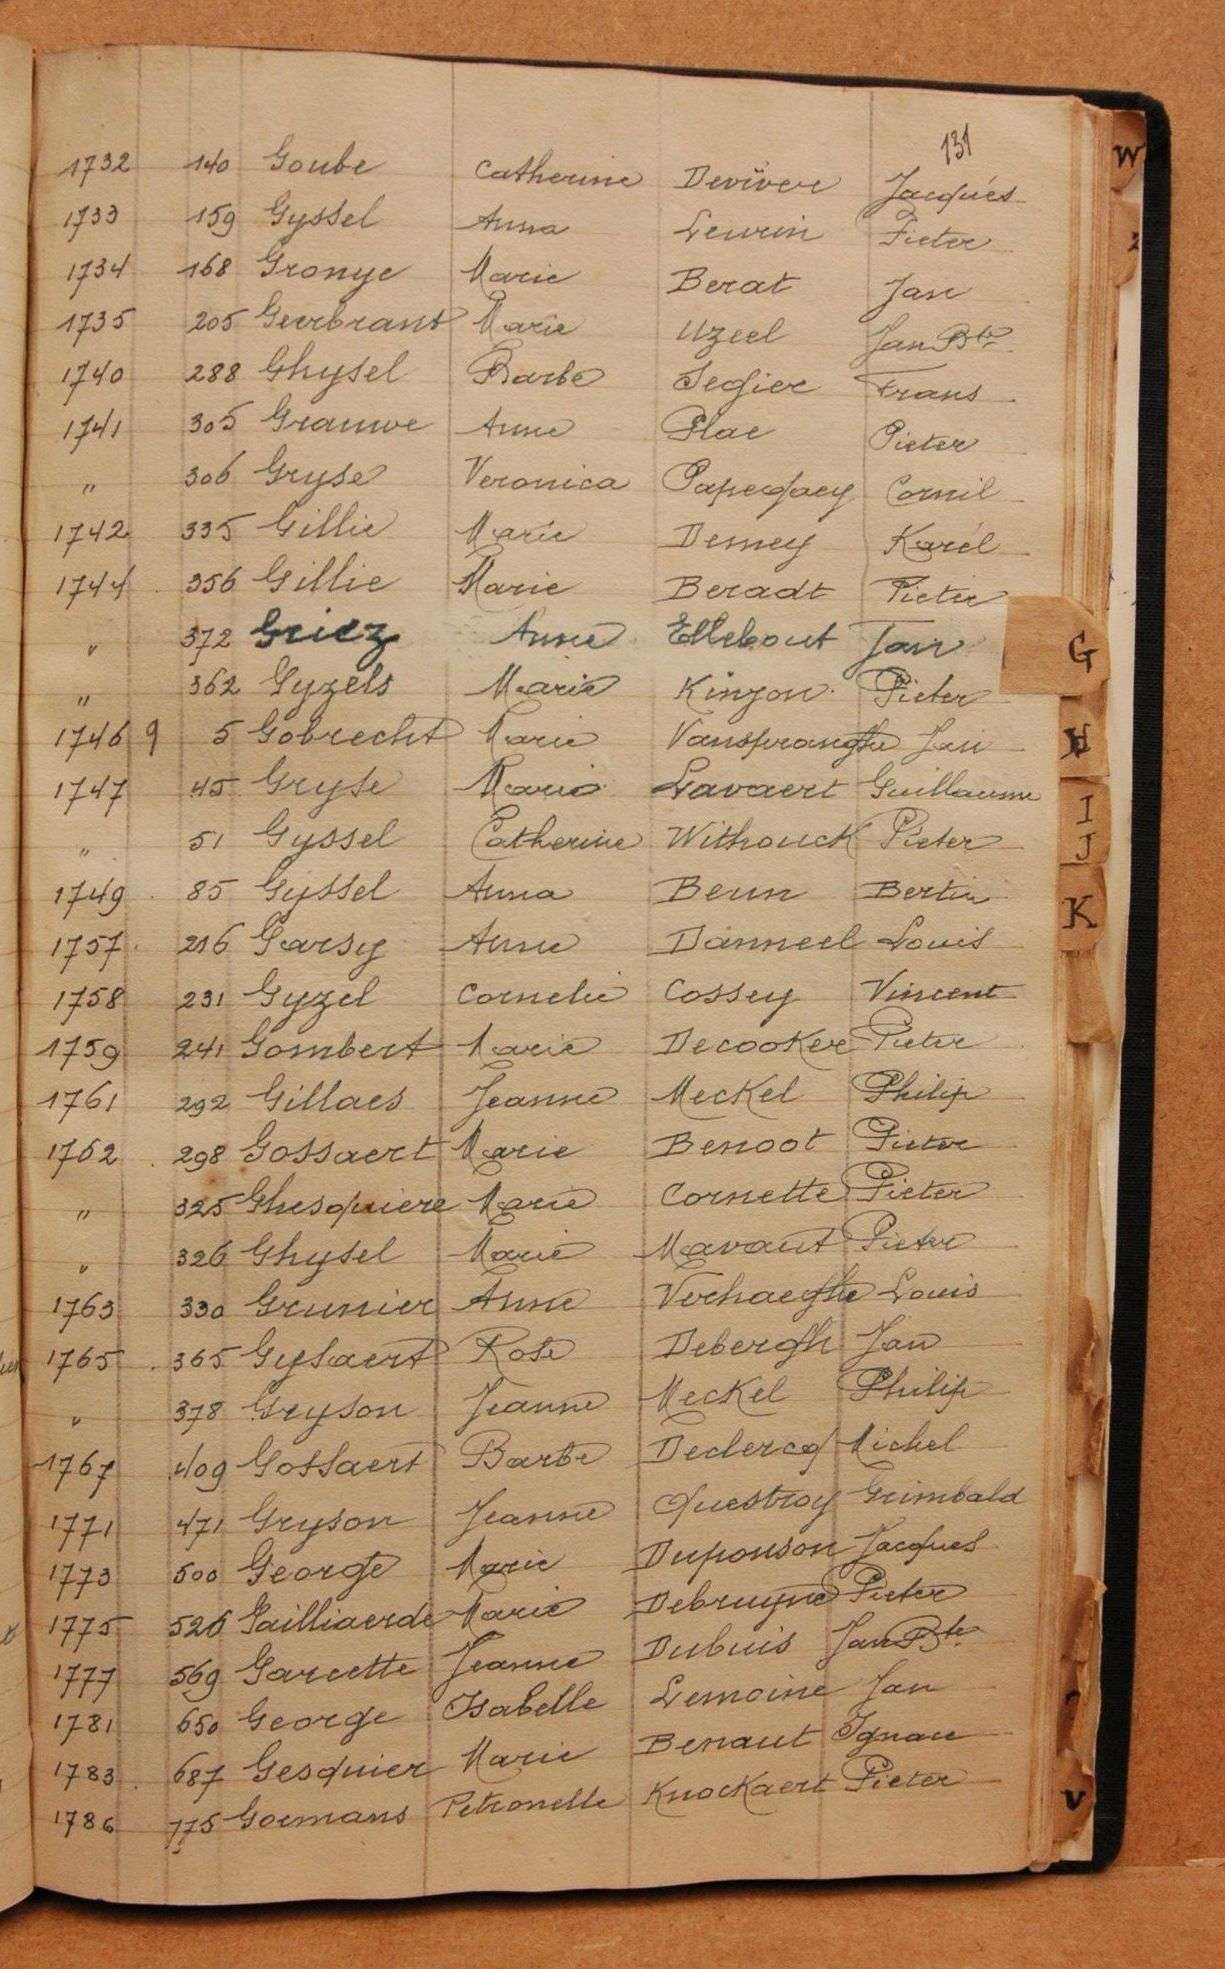 131
1732 140 Goube Catherine Deviver Jacques
1733 159 Gyssel Anna Leurin Pieter
1734 168 Gronye Marie Berat Jan
1735 205 Geerbrant Marie Uzeel Jan Bte
1740 288 Ghysel Barbe Segier Frans
1741 305 Grauwe Anne Plae Pieter
" 306 Gryse Veronica Papegaey Cornil
1742 335 Gillie Marie Demey Karel
1744 356 Gillie Marie Beradt Pieter
" 372 Griez Anne Ellebout Jan
" 362 Gyzels Marie Kinjon Pieter
1746 9 5 Gobrecht Marie Vanspranghe Jan
1747 45 Gryse Marie Lavaert Guillaume
" 51 Gyssel Catherine Withouck Pieter
1749 85 Gyssel Anna Beun Bertin
1757 216 Garsy Anne Danneel Louis
1758 231 Gyzel Cornelie Cossey Vincent
1759 241 Gombert Marie Decooker Pieter
1761 292 Gillaes Jeanne Meckel Philip
1762 298 Gossaert Marie Benoot Pieter
" 325 Ghesquiere Marie Cornette Pieter
" 326 Ghysel Marie Mavaut Pieter
1763 330 Grunier Anne Verhaeghe Louis
1765 365 Gysaert Rose Debergh Jan
" 378 Gryson Jeanne Meckel Philip
1767 409 Gossaert Barbe Declercq Michel
1771 471 Gryson Jeanne Questroy Grimbald
1773 500 George Marie Duponson Jacques
1775 526 Gailliaerde Marie Debruyne Pieter
1777 569 Garcette Jeanne Dubuis Jan Bte
1781 650 George Isabelle Lemoine Jan
1783 687 Gesquier Marie Benaut Ignace
1786 775 Goemans Petronelle Knockaert Pieter
W
G
H
I
J
K
V